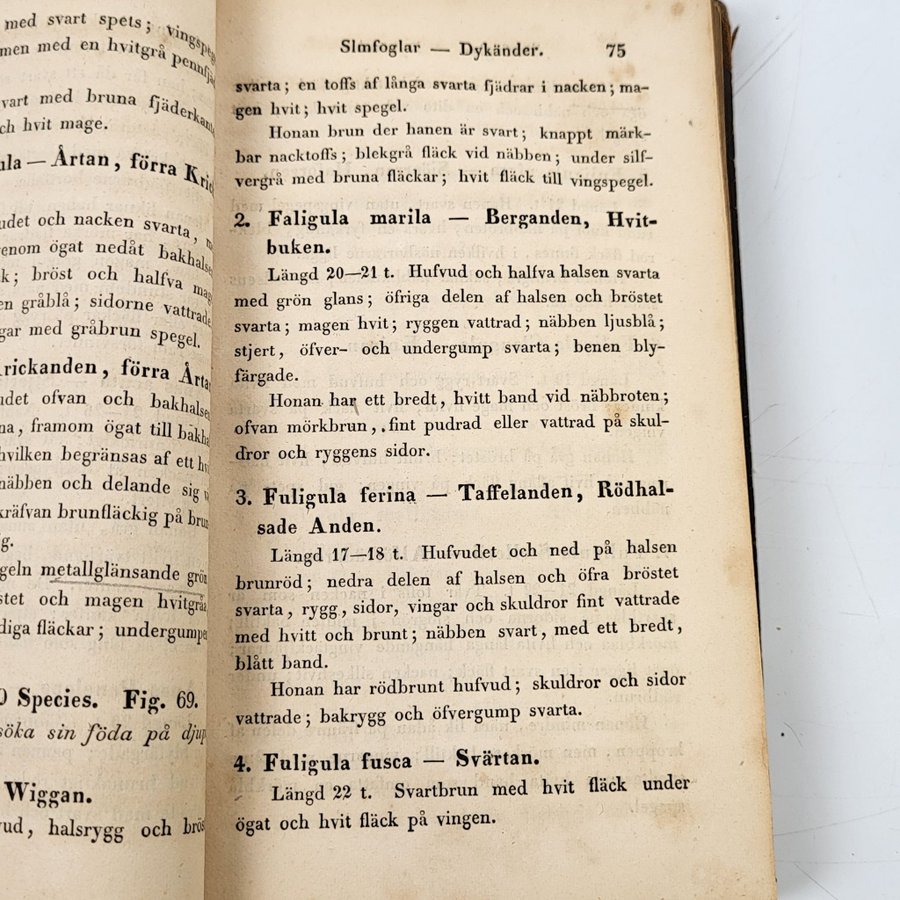 med svart spets;
men med en hvitgrå
svart med bruna
och hvit mage.
— Årtan, förra
udet och nacken svarta,
genom ögat nedåt
k; bröst och halfva
en gråblå; sidorne vattrade
gar med gråbrun spegel.
rickanden, förra Årta
udet ofvan och bakhalsen
na, framom ögat till
hvilken begränsas af ett
näbben och delande sig
kräfvan brunfläckig på
g.
geln metallglänsande grön
stet och magen hvitgråa
diga fläckar; undergumpen
0 Species. Fig. 69.
söka sin föda på djup
Wiggan.
vud, halsrygg och brös
Slmfoglar — Dykänder. 75
svarta; en toffs af långa svarta fjädrar i nacken; ma-
gen hvit; hvit spegel.
Honan brun der hanen är svart; knappt märk-
bar nacktoffs; blekgrå fläck vid näbben; under silf-
vergrå med bruna fläckar; hvit fläck till vingspegel.
2. Faligula marila — Berganden, Hvit-
buken.
Längd 20—21 t. Hufvud och halfva halsen svarta
med grön glans; öfriga delen af halsen och bröstet
svarta; magen hvit; ryggen vattrad; näbben ljusblå;
stjert, öfver- och undergump svarta; benen bly-
färgade.
Honan har ett bredt, hvitt band vid näbbroten;
ofvan mörkbrun, fint pudrad eller vattrad på skul-
dror och ryggens sidor.
3. Fuligula ferina — Taffelanden, Rödhal-
sade Anden.
Längd 17—18 t. Hufvudet och ned på halsen
brunröd; nedra delen af halsen och öfra bröstet
svarta, rygg, sidor, vingar och skuldror fint vattrade
med hvitt och brunt; näbben svart, med ett bredt,
blått band.
Honan har rödbrunt hufvud; skuldror och sidor
vattrade; bakrygg och öfvergump svarta.
4. Fuligula fusca — Svärtan.
Längd 22 t. Svartbrun med hvit fläck under
ögat och hvit fläck på vingen.